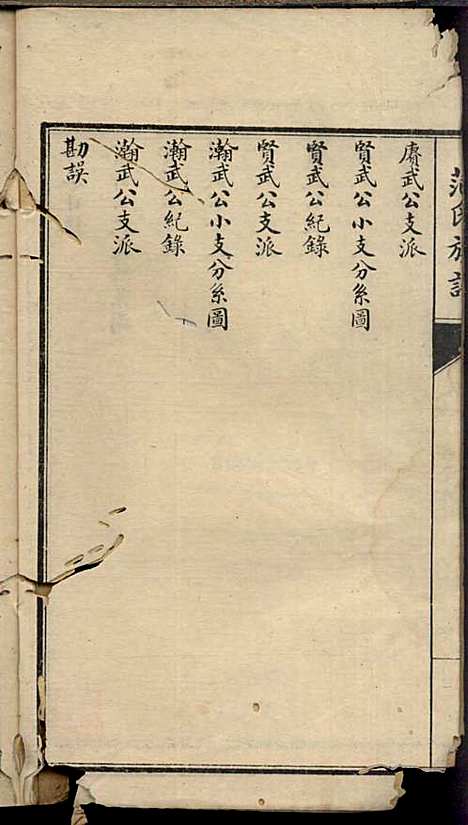 范氏族譜
賡武公支派
賢武公小支分系圖
賢武公紀錄
賢武公支派
瀚武公小支分系圖
瀚武公紀錄
瀚武公支派
勘誤